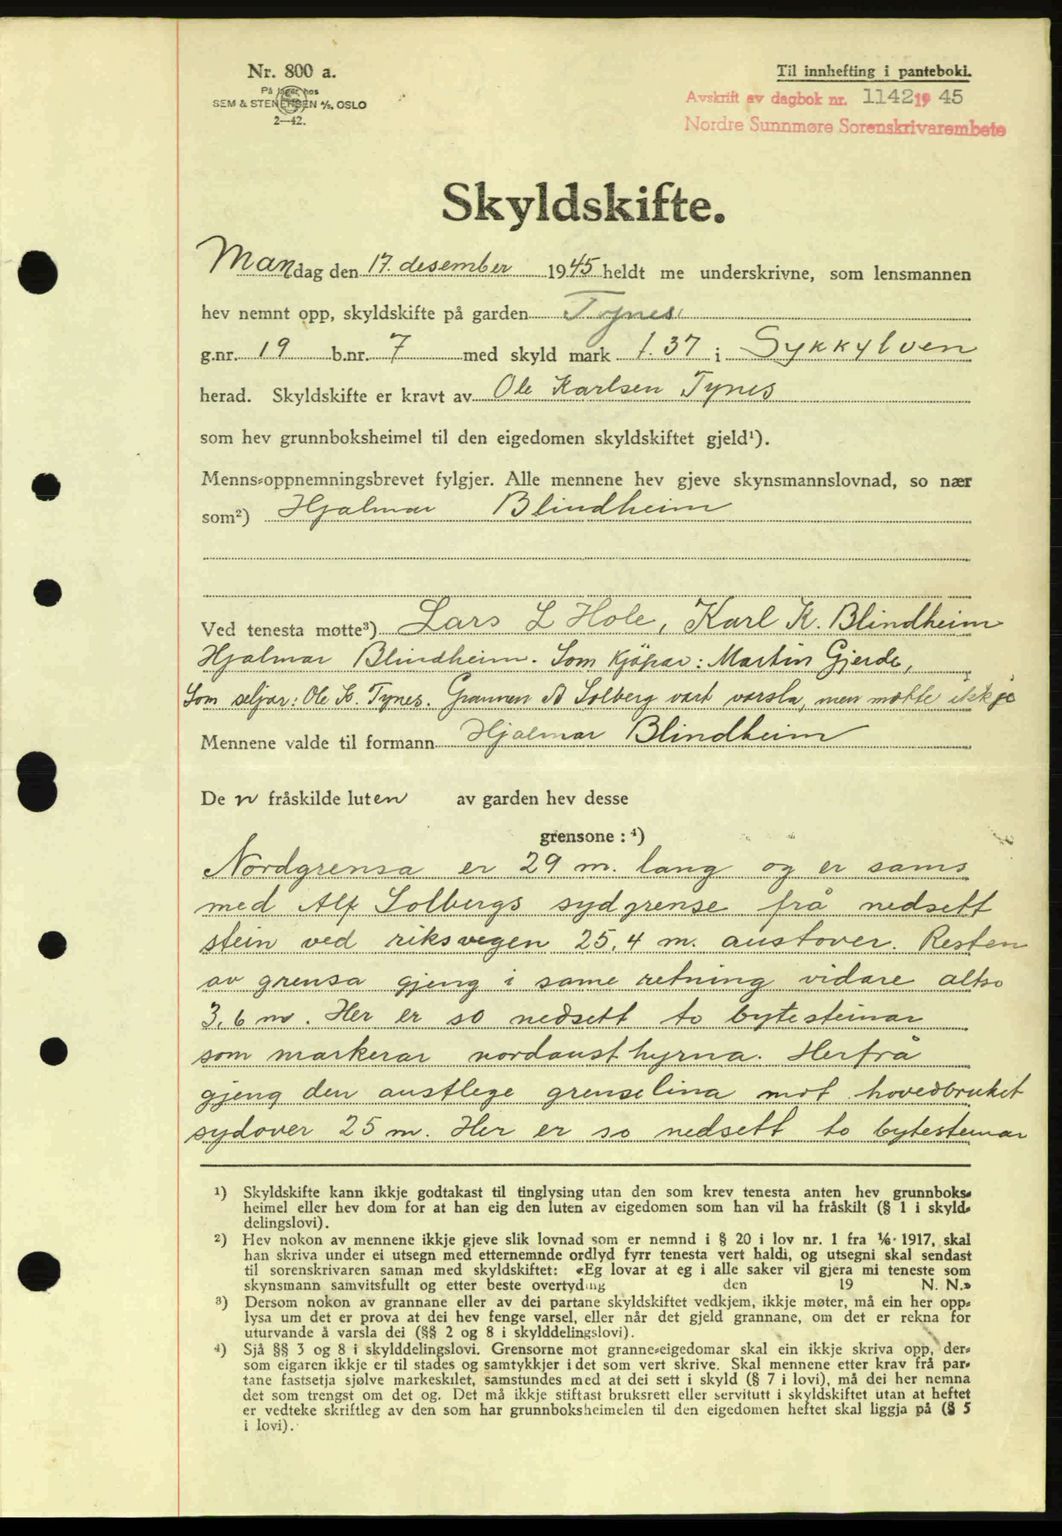 Nr. 800 a.
På lager hos
SEM & STENERSEN A/S, OSLO
2—42.
Til innhefting i panteboki.
Avskrift av dagbok nr. 1142 1945
Nordre Sunnmøre Sorenskrivarembete
Skyldskifte.
Mandag den 17. desember 1945 heldt me underskrivne, som lensmannen
hev nemnt opp, skyldskifte på garden Tynes
g.nr. 19 b.nr. 7 med skyld mark 1.37 i Sykkylven
herad. Skyldskifte er kravt av Ole Karlsen Tynes
som hev grunnboksheimel til den eigedomen skyldskiftet gjeld¹).
Menns-oppnemningsbrevet fylgjer. Alle mennene hev gjeve skynsmannslovnad, so nær
som²) Hjalmar Blindheim
Ved tenesta møtte³) Lars L Hole, Karl K. Blindheim
Hjalmar Blindheim. Som kjöpar: Martin Gjerde,
Som seljar: Ole K. Tynes. Grannen A Solberg vart varsla, men møtte ikkje
Mennene valde til formann Hjalmar Blindheim
De n fråskilde luten av garden hev desse
grensone: ⁴)
Nordgrensa er 29 m. lang og er sams
med Alf Solbergs sydgrense frå nedsett
stein ved riksvegen 25,4 m. austover. Resten
av grensa gjeng i same retning vidare altso
3,6 m. Her er so nedsett to bytesteinar
som markerar nordausthyrna. Herfrå
gjeng den austlege grenselina mot hovedbruket
sydover 25 m. Her er so nedsett to bytesteinar
¹) Skyldskifte kann ikkje godtakast til tinglysing utan den som krev tenesta anten hev grunnboks-
heimel eller hev dom for at han eig den luten av eigedomen som han vil ha fråskilt (§ 1 i skyld-
delingslovi).
²) Hev nokon av mennene ikkje gjeve slik lovnad som er nemnd i § 20 i lov nr. 1 fra 1/6 1917, skal
han skriva under ei utsegn med etternemnde ordlyd fyrr tenesta vert haldi, og utsegni skal sendast
til sorenskrivaren saman med skyldskiftet: «Eg lovar at eg i alle saker vil gjera mi teneste som
skynsmann samvitsfullt og etter beste overtyding den 19 N. N.»
³) Dersom nokon av grannane eller av dei partane skyldskiftet vedkjem, ikkje møter, må ein her opp-
lysa um det er prova at dei hev fenge varsel, eller når det gjeld grannane, om det er rekna for
uturvande å varsla dei (§§ 2 og 8 i skylddelingslovi).
⁴) Sjå §§ 3 og 8 i skylddelingslovi. Grensorne mot granne-eigedomar skal ein ikkje skriva opp, der-
som eigaren ikkje er til stades og samtykkjer i det som vert skrive. Skal mennene etter krav frå par-
tane fastsetja sjølve markeskilet, samstundes med at dei sett i skyld (§ 7 i lovi), må dei her nemna
det som trengst om det og. Det må ikkje stiftast bruksrett eller servitutt i skyldskiftet utan at heftet
er vedteke skriftleg av den som har grunnboksheimelen til den eigedomen heftet skal liggja på (§ 5
i lovi).